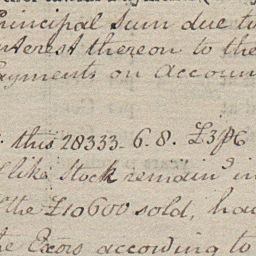 Principal Sum due to
Interest thereon to the
Payments on Accoun
this 28333. 6. 8. £3 p
like Stock remain.d in
the £10600 sold, ha
the Exors according to